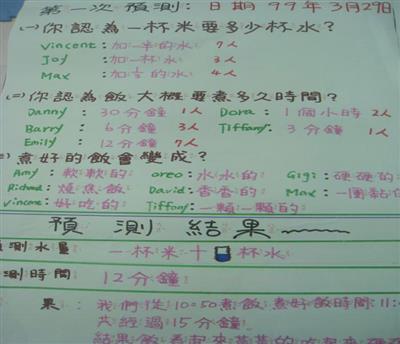 第一次預測：日期99年3月29日
(一)你認為一杯米要多少杯水？
Vincent：加一半的水 7人
Joy：加一杯水 3人
Max：加的水 4人
(二)你認為飯大概要煮多久時間？
Danny：30分鐘 1人 Dora：1個小時 2人
Barry：6分鐘 3人 Tiffany：3分鐘 1人
Emily：12分鐘 7人
煮好的飯會變成？
Amy：軟軟的 oreo：水水的 Gigi：硬硬的
Richard：燒焦飯 David：香香的 Max：一團黏
Vincent：好吃的 Tiffany：一顆一顆的
預測結果
測水量 一杯米十杯水
測時間 12分鐘
果：我們從10:50煮飯，煮好飯時間：11:0
共經過15分鐘
結果飯看起來